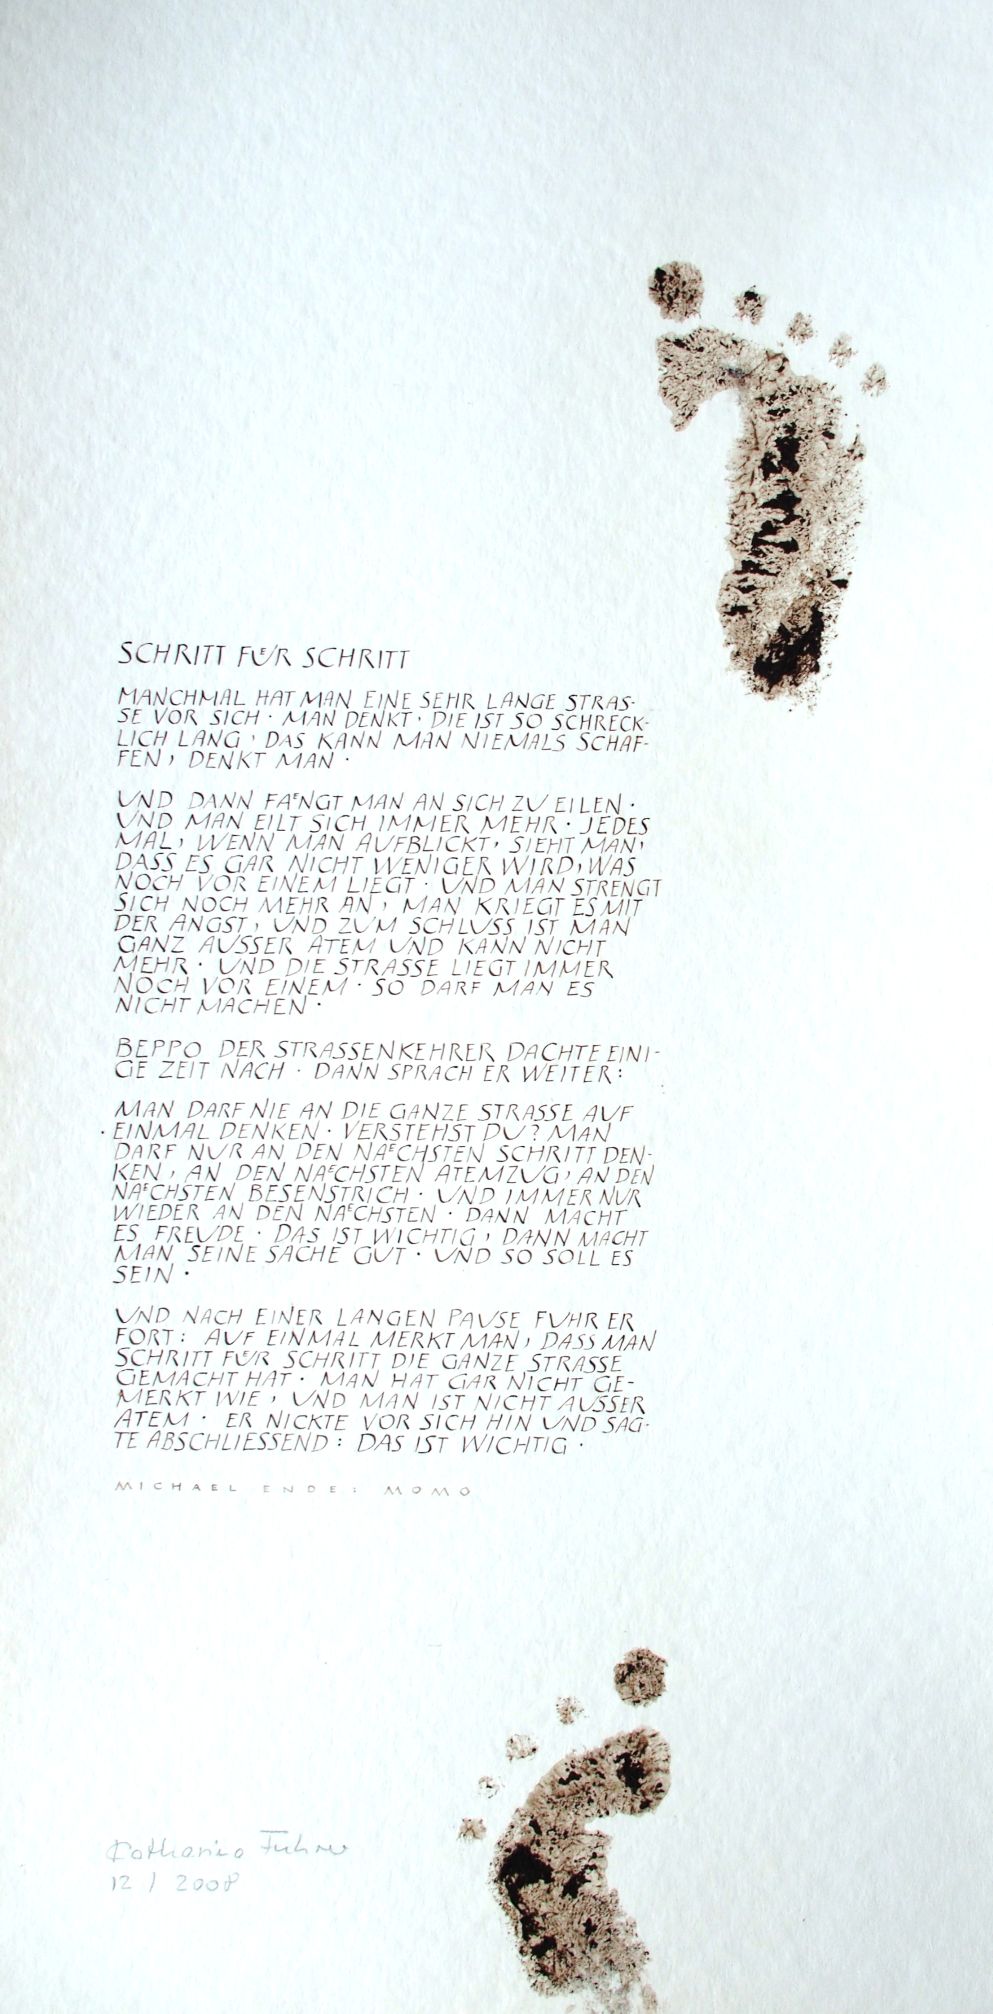 SCHRITT FUᵉR SCHRITT
MANCHMAL HAT MAN EINE SEHR LANGE STRAS-
SE VOR SICH · MAN DENKT, DIE IST SO SCHRECK-
LICH LANG, DAS KANN MAN NIEMALS SCHAF-
FEN, DENKT MAN ·
UND DANN FAᵉNGT MAN AN SICH ZU EILEN ·
UND MAN EILT SICH IMMER MEHR · JEDES
MAL, WENN MAN AUFBLICKT, SIEHT MAN,
DASS ES GAR NICHT WENIGER WIRD, WAS
NOCH VOR EINEM LIEGT · UND MAN STRENGT
SICH NOCH MEHR AN, MAN KRIEGT ES MIT
DER ANGST, UND ZUM SCHLUSS IST MAN
GANZ AUSSER ATEM UND KANN NICHT
MEHR · UND DIE STRASSE LIEGT IMMER
NOCH VOR EINEM · SO DARF MAN ES
NICHT MACHEN ·
BEPPO DER STRASSENKEHRER DACHTE EINI-
GE ZEIT NACH · DANN SPRACH ER WEITER:
MAN DARF NIE AN DIE GANZE STRASSE AUF
EINMAL DENKEN · VERSTEHST DU? MAN
DARF NUR AN DEN NAᵉCHSTEN SCHRITT DEN-
KEN, AN DEN NAᵉCHSTEN ATEMZUG, AN DEN
NAᵉCHSTEN BESENSTRICH · UND IMMER NUR
WIEDER AN DEN NAᵉCHSTEN · DANN MACHT
ES FREUDE · DAS IST WICHTIG, DANN MACHT
MAN SEINE SACHE GUT · UND SO SOLL ES
SEIN ·
UND NACH EINER LANGEN PAUSE FUHR ER
FORT: AUF EINMAL MERKT MAN, DASS MAN
SCHRITT FUᵉR SCHRITT DIE GANZE STRASSE
GEMACHT HAT · MAN HAT GAR NICHT GE-
MERKT WIE, UND MAN IST NICHT AUSSER
ATEM · ER NICKTE VOR SICH HIN UND SAG-
TE ABSCHLIESSEND: DAS IST WICHTIG ·
MICHAEL ENDE: MOMO
Katharina
12 / 2008